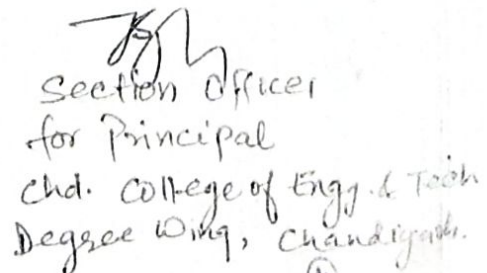 Section Officer
for Principal
Chd. College of Engg. & Tech
Degree Wing, Chandigarh.